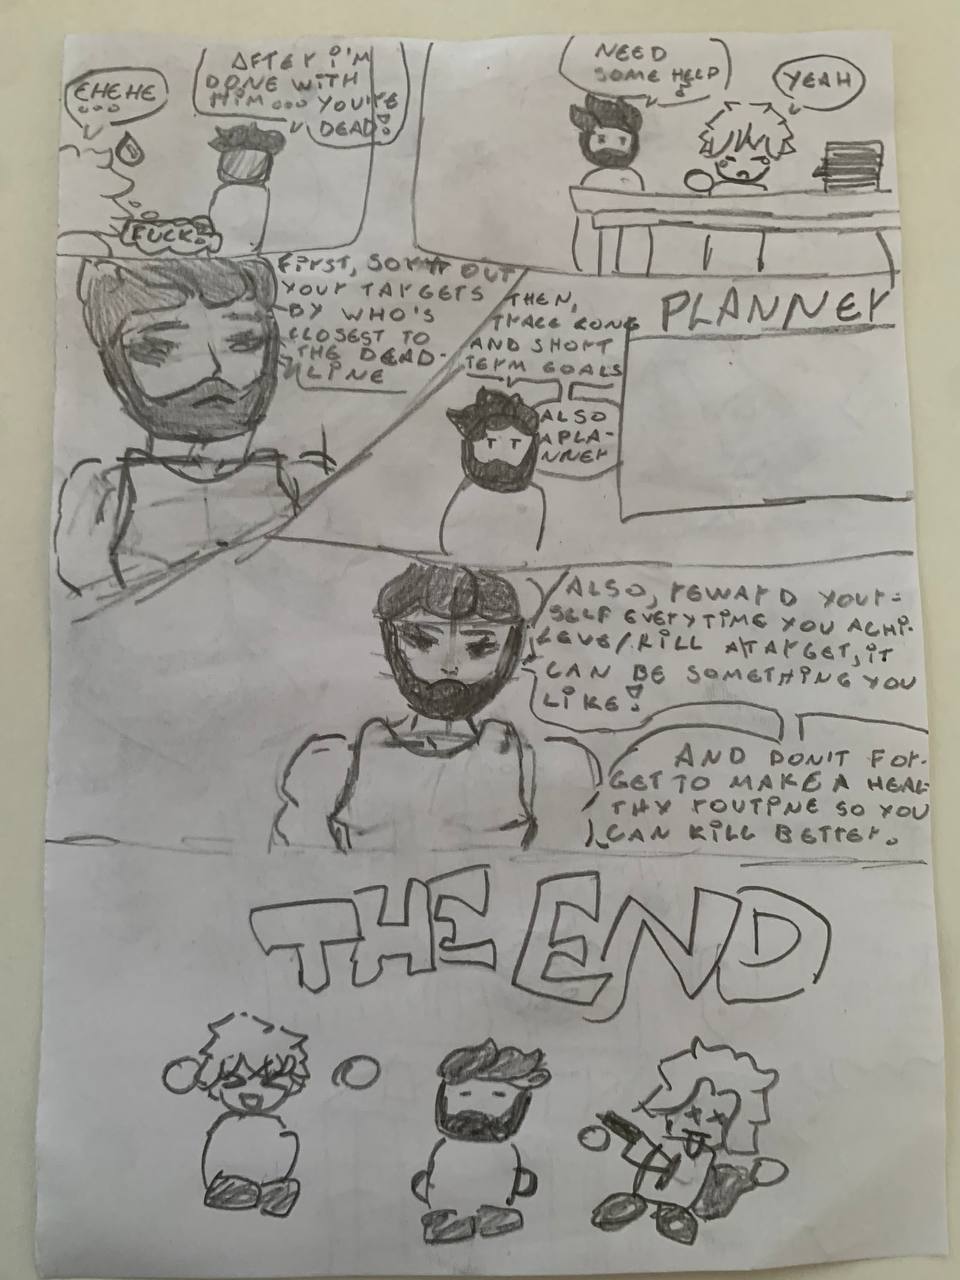 EHEHE
...
AFTER I'M
DONE WITH
HIM... YOU'RE
DEAD!
FUCK!
NEED
SOME HELP?
YEAH
FIRST, SORT OUT
YOUR TARGETS
BY WHO'S
CLOSEST TO
THE DEAD-
LINE
THEN,
AND SHORT
TERM GOALS
ALSO
A PLA-
NNER
PLANNER
ALSO, REWARD YOUR-
SELF EVERYTIME YOU ACHI-
EVE/KILL A TARGET, IT
CAN BE SOMETHING YOU
LIKE!
AND DON'T FOR-
GET TO MAKE A HEAL-
THY ROUTINE SO YOU
CAN KILL BETTER.
THE END